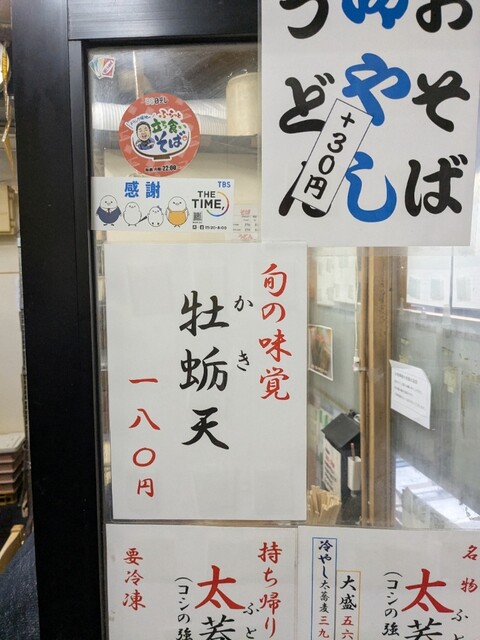 おそば
冷やし
うどん
+30円
立ち食い
そば
感謝
TBS
THE
TIME,
旬の味覚
かき
牡蛎天
一八〇円
持ち帰り
太蕎
ふと
(コシの強
要冷凍
名物
太蕎
ふと
(コシの強
大盛 五六
冷やし太蕎麦三九